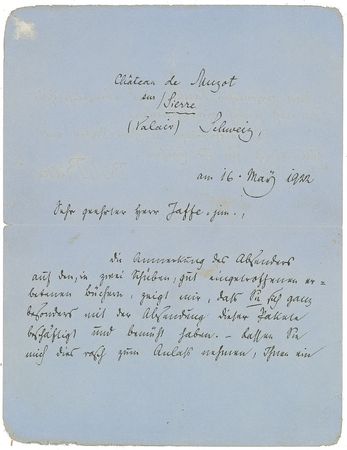 Château de Muzot
sur/Sierre
(Valais) Schweiz,
am 16. März 1922
Sehr geehrter Herr Jaffe jun.,
die Anmerkung des Absenders
auf den, in zwei Schüben, gut eingetroffenen er=
betenen Büchern, zeigt mir, daß Sie sich ganz
besonders mit der Absendung dieser Pakete
beschäftigt und bemüht haben. – Lassen Sie
mich dies rasch zum Anlaß nehmen, Ihnen ein